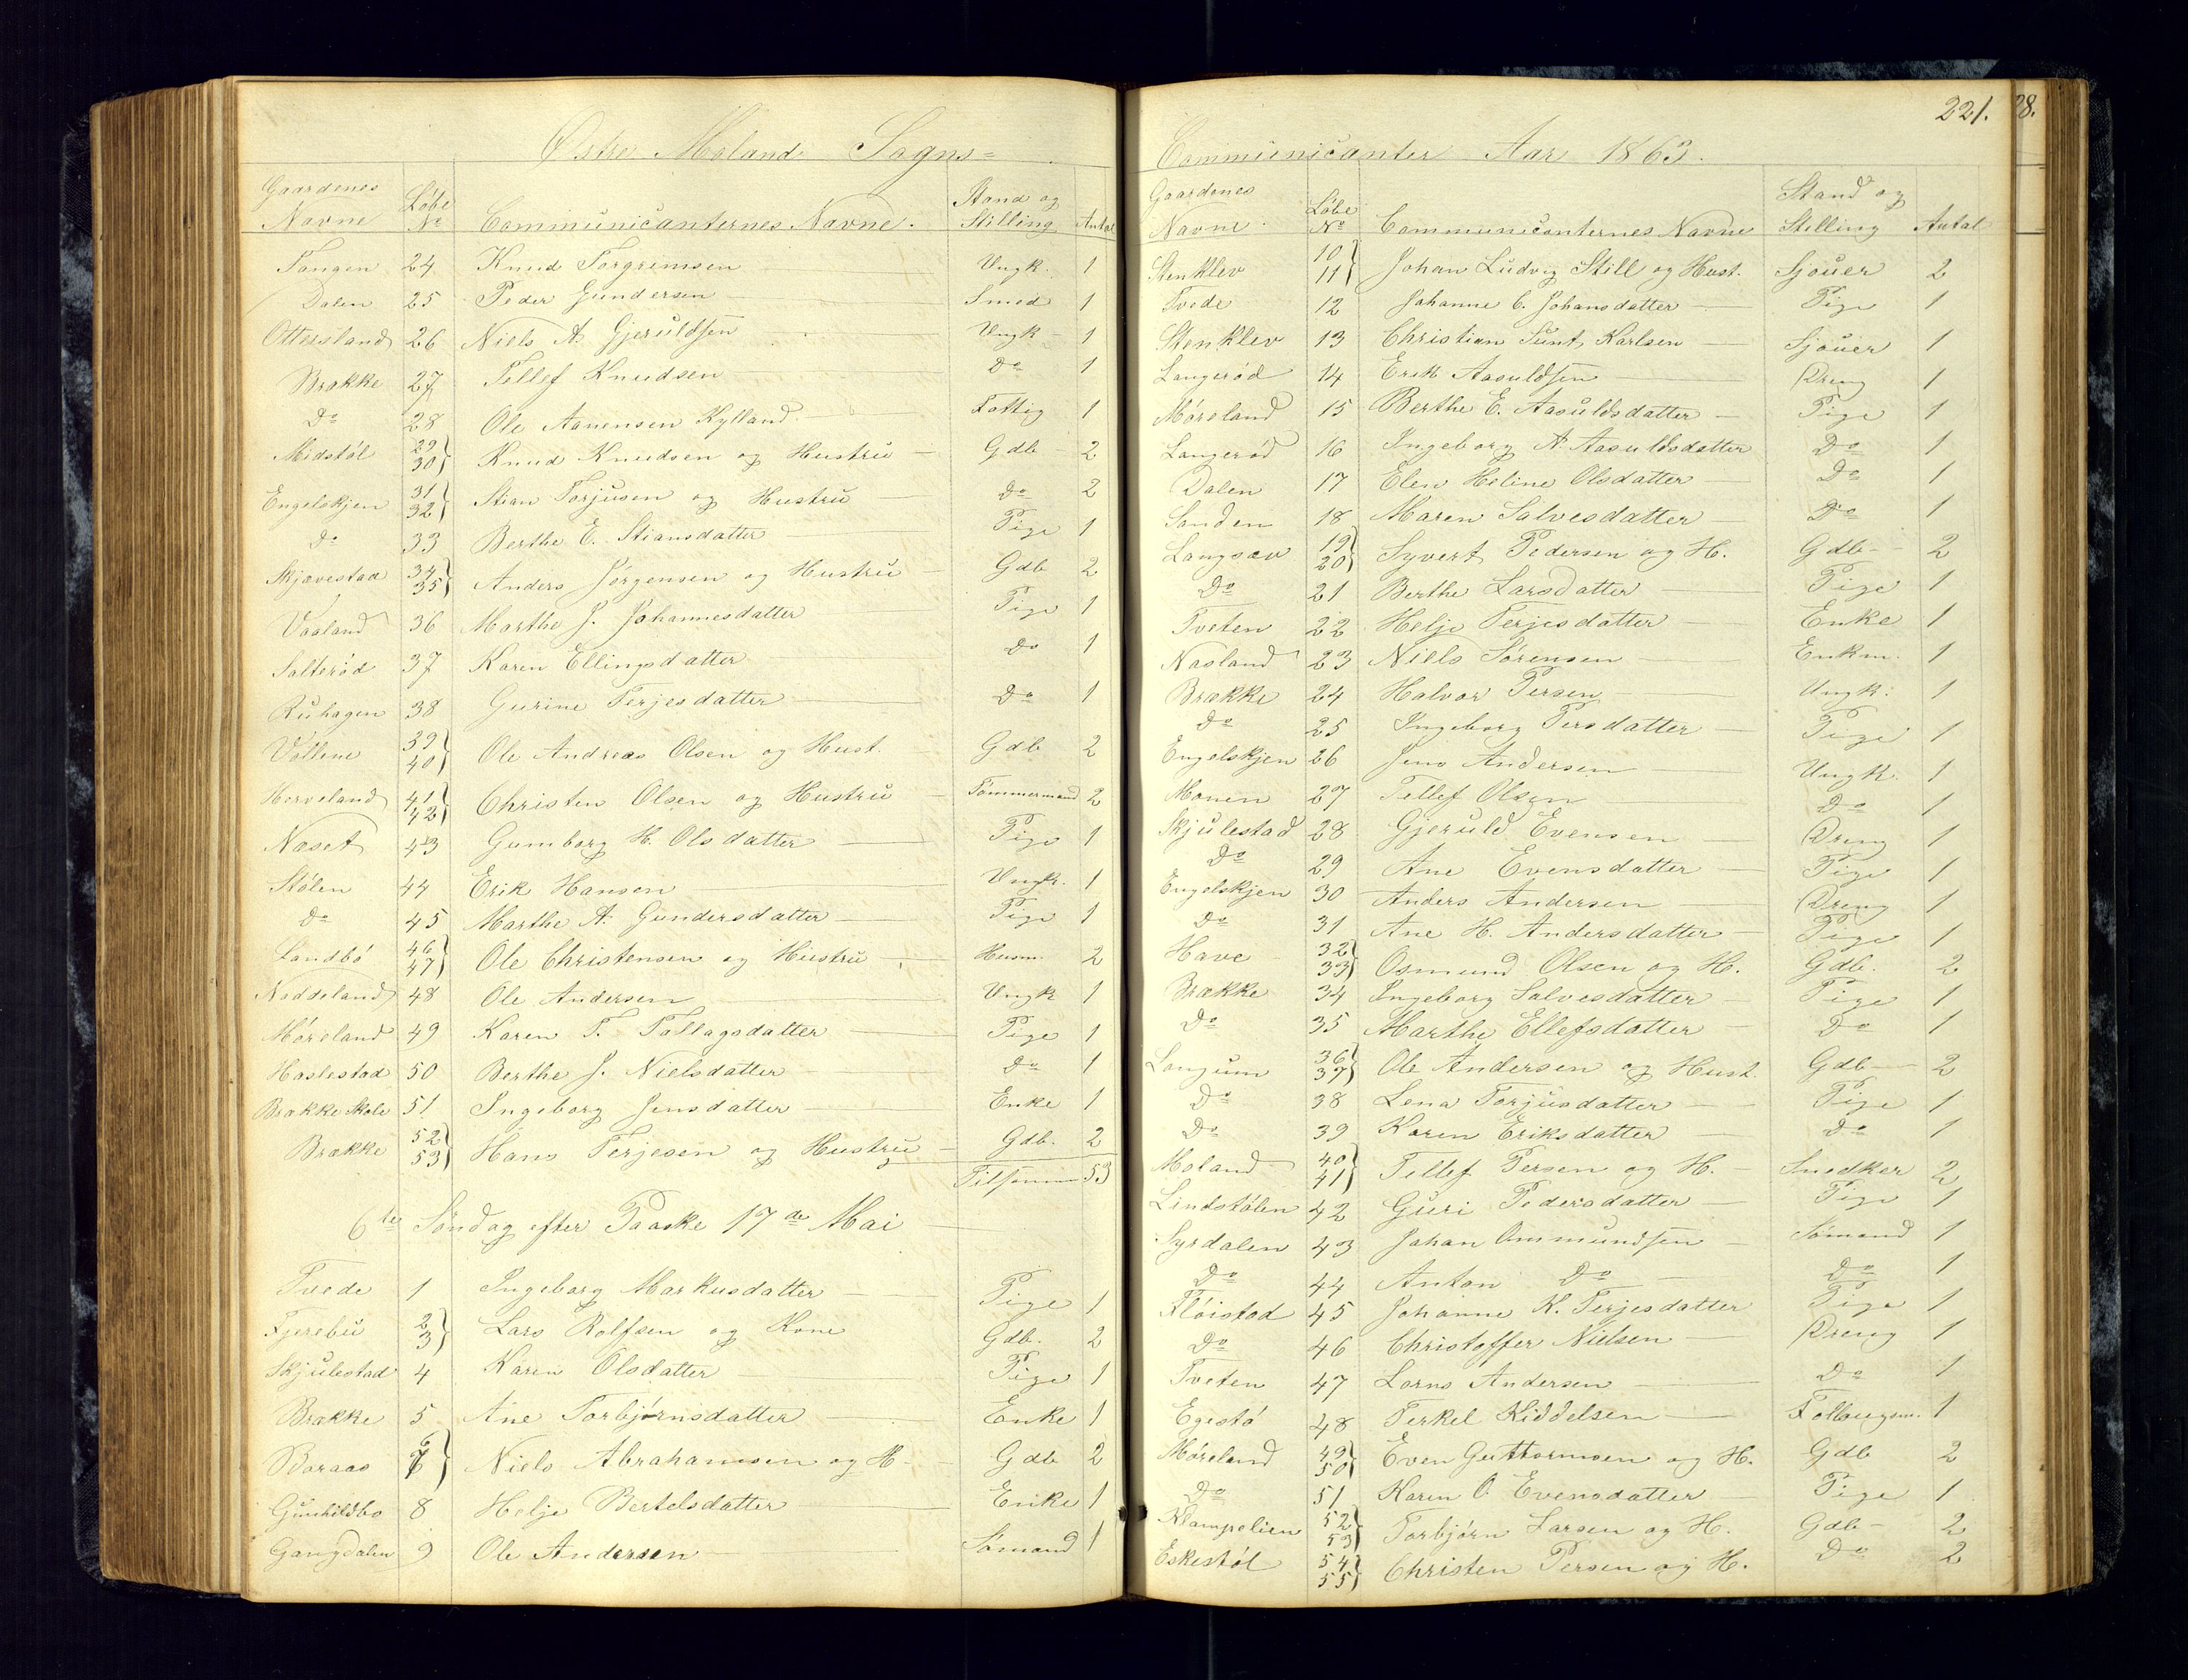 Østre Moland Sogns=
Gaardenes Navne Løbe No Communicanternes Navne. Stand og Stilling Antal
Tangen 24 Knud Torgrimsen Ungk. 1
Dalen 25 Peder Gundersen Smed 1
Ottersland 26 Niels A. Gjeruldsen Ungk 1
Brække 27 Tellef Knudsen Do 1
Do 28 Ole Aanensen Kylland Fattig 1
Midstøl 29 30 Knud Knudsen og Hustru Gdb 2
Engelskjen 31 32 Stian Torjusen og Hustru Do 2
Do 33 Berthe E. Stiansdatter Pige 1
Skjævestad 34 35 Anders Jørgensen og Hustru Gdb 2
Vaaland 36 Marthe J. Johannesdatter Pige 1
Salterød 37 Karen Ellingsdatter Do 1
Ruhagen 38 Gurine Terjesdatter Do 1
Vollene 39 40 Ole Andreas Olsen og Hust. Gdb 2
Herveland 41 42 Christen Olsen og Hustru Tømmermand 2
Næset 43 Gumborg H. Olsdatter Pige 1
Stølen 44 Erik Hansen Ungk. 1
Do 45 Marthe A. Gundersdatter Pige 1
Landbø 46 47 Ole Christensen og Hustru Husm. 2
Næddeland 48 Ole Andersen Ungk 1
Møreland 49 Karen T. Tallagsdatter Pige 1
Haslestad 50 Berthe J. Nielsdatter Do 1
Brække Skole 51 Ingeborg Jensdatter Enke 1
Brække 52 53 Hans Terjesen og Hustru Gdb. 2
Tilsammen 53
6te Søndag efter Paaske 17de Mai
Tvede 1 Ingeborg Markusdatter Pige 1
Fjerebu 2 3 Lars Rolfsen og Kone Gdb. 2
Skjulestad 4 Karen Olsdatter Pige 1
Brække 5 Ane Torbjørnsdatter Enke 1
Baraas 6 7 Niels Abrahamsen og H. Gdb 2
Gunhildbo 8 Helje Bertelsdatter Enke 1
Gangdalen 9 Ole Andersen Sømand 1
221.
28.
Communicanter Aar 1863.
Gaardenes Navne Løbe No Communicanternes Navne Stand og Stilling Antal
Stenklev 10 11 Johan Ludvig Still og Hust. Sjouer 2
Tvede 12 Johanne C. Johansdatter Pige 1
Stenklev 13 Christian Sunt Karlsen Sjouer 1
Langerød 14 Erik Aasuldsen Dreng 1
Møreland 15 Berthe E. Aasuldsdatter Pige 1
Langerød 16 Ingeborg A. Aasuldsdatter Do 1
Dalen 17 Elen Heline Olsdatter Do 1
Sanden 18 Maren Salvesdatter Do 1
Langsæv 19 20 Syvert Pedersen og H. Gdb 2
Do 21 Berthe Larsdatter Pige 1
Tveten 22 Helje Terjesdatter Enke 1
Næsland 23 Niels Sørensen Enkm. 1
Brække 24 Halvor Persen Ungk. 1
Do 25 Ingeborg Persdatter Pige 1
Engelskjen 26 Jens Andersen Ungk. 1
Monen 27 Tellef Olsen Do 1
Skjulestad 28 Gjeruld Evensen Dreng 1
Do 29 Ane Evensdatter Pige 1
Engelskjen 30 Anders Andersen Dreng 1
Do 31 Ane H. Andersdatter Pige 1
Have 32 33 Osmund Olsen og H. Gdb. 2
Brække 34 Ingeborg Salvesdatter Pige 1
Do 35 Marthe Ellefsdatter Do 1
Langum 36 37 Ole Andersen og Hust. Gdb 2
Do 38 Lena Torjusdatter Pige 1
Do 39 Karen Eriksdatter Do 1
Moland 40 41 Tellef Persen og H. Snedker 2
Lindstølen 42 Guri Pedersdatter Pige 1
Syrdalen 43 Johan Ommundsen Sømand 1
Do 44 Anton Do Do 1
Fløistad 45 Johanne K. Terjesdatter Pige 1
Do 46 Christoffer Nielsen Dreng 1
Tveten 47 Lorns Andersen Do 1
Egestø 48 Terkel Kiddelsen Follaugsm. 1
Møreland 49 50 Even Guttormsen og H. Gdb 2
Do 51 Karen O. Evensdatter Pige 1
Klampelien 52 53 Torbjørn Larsen og H. Gdb 2
Eskestøl 54 55 Christen Persen og H. Do 2